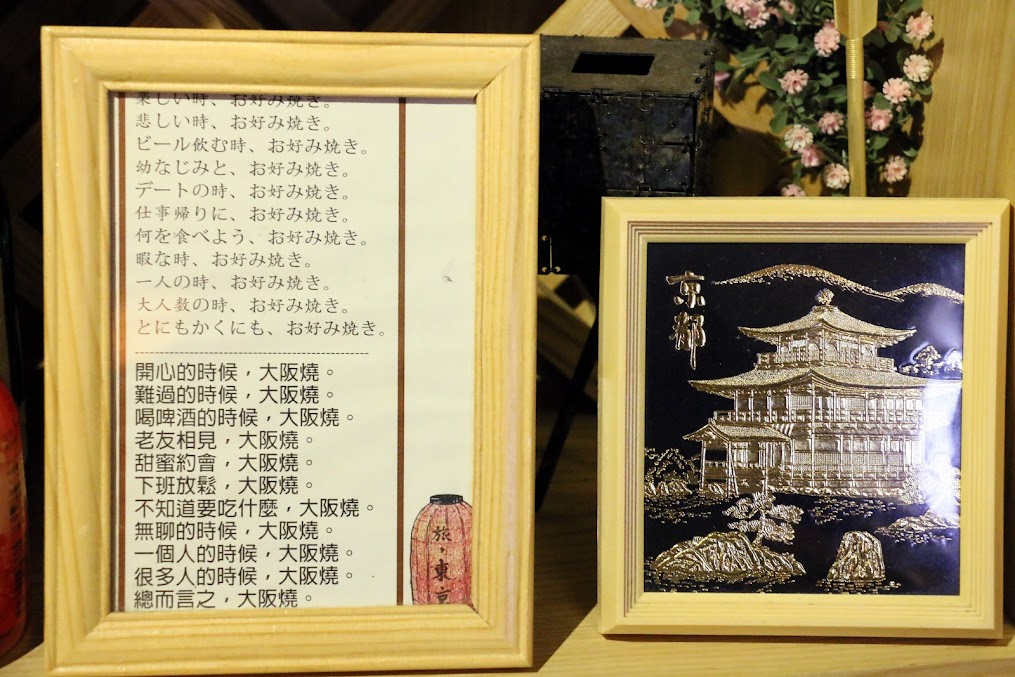 楽しい時、お好み焼き。
悲しい時、お好み焼き。
ビール飲む時、お好み焼き。
幼なじみと、お好み焼き。
デートの時、お好み焼き。
仕事帰りに、お好み焼き。
何を食べよう、お好み焼き。
暇な時、お好み焼き。
一人の時、お好み焼き。
大人数の時、お好み焼き。
とにもかくにも、お好み焼き。
開心的時候，大阪燒。
難過的時候，大阪燒。
喝啤酒的時候，大阪燒。
老友相見，大阪燒。
甜蜜約會，大阪燒。
下班放鬆，大阪燒。
不知道要吃什麼，大阪燒。
無聊的時候，大阪燒。
一個人的時候，大阪燒。
很多人的時候，大阪燒。
總而言之，大阪燒。
旅，東京
京都